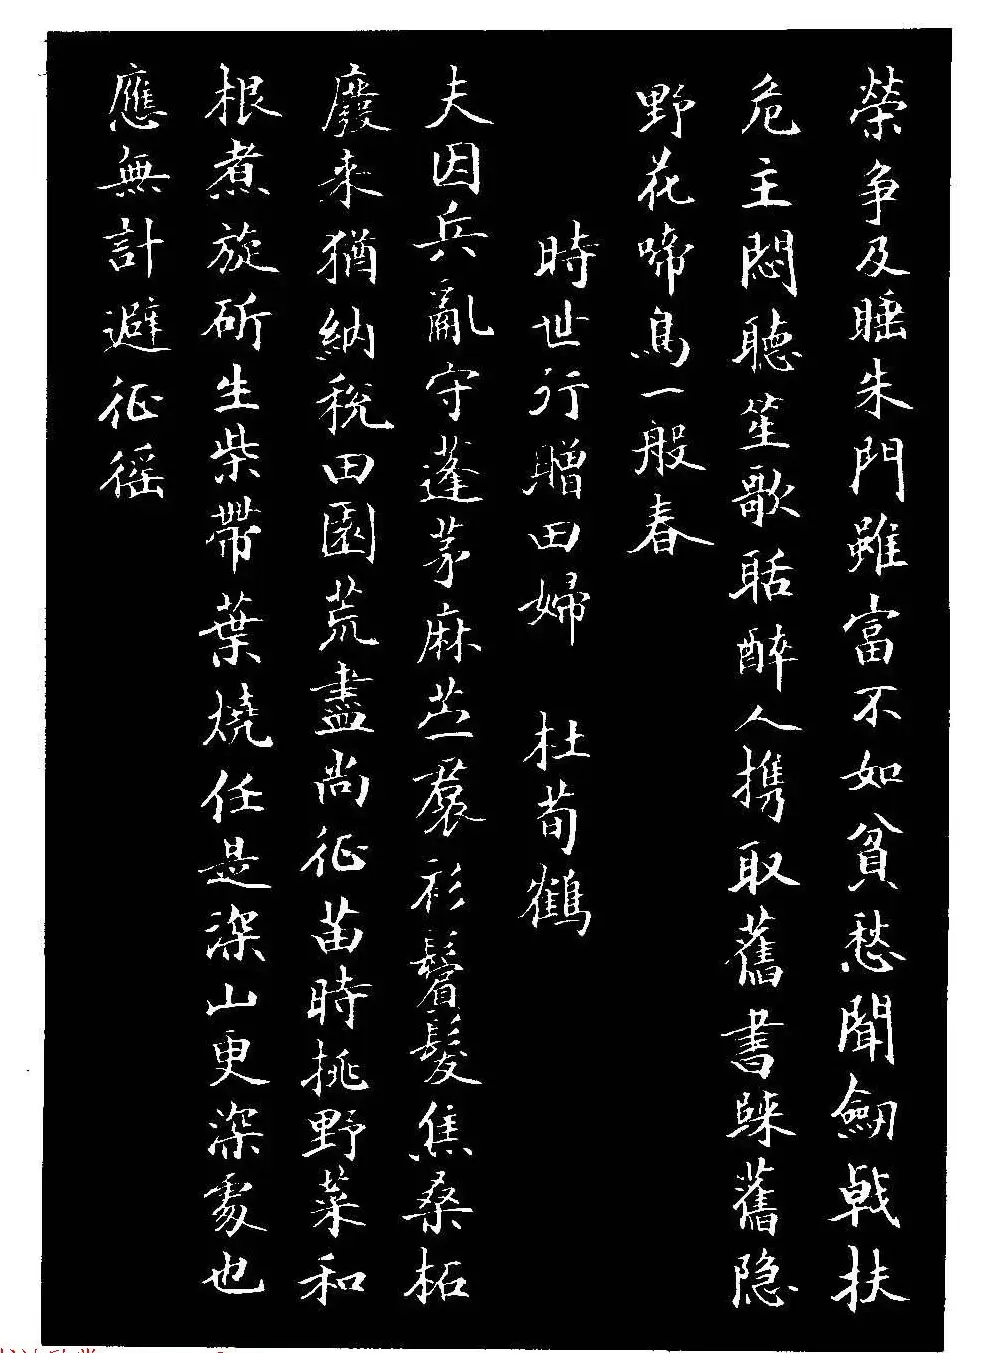 榮争及睡朱門雖富不如貧愁聞劒戟扶
危主悶聽笙歌聒醉人携取舊書歸舊隐
野花啼鳥一般春
時世行贈田婦 杜荀鶴
夫因兵亂守蓬茅麻苎裠衫鬢髮焦桑柘
廢来猶納税田園荒盡尚征苗時挑野菜和
根煮旋斫生柴帶葉燒任是深山更深處也
應無計避征徭